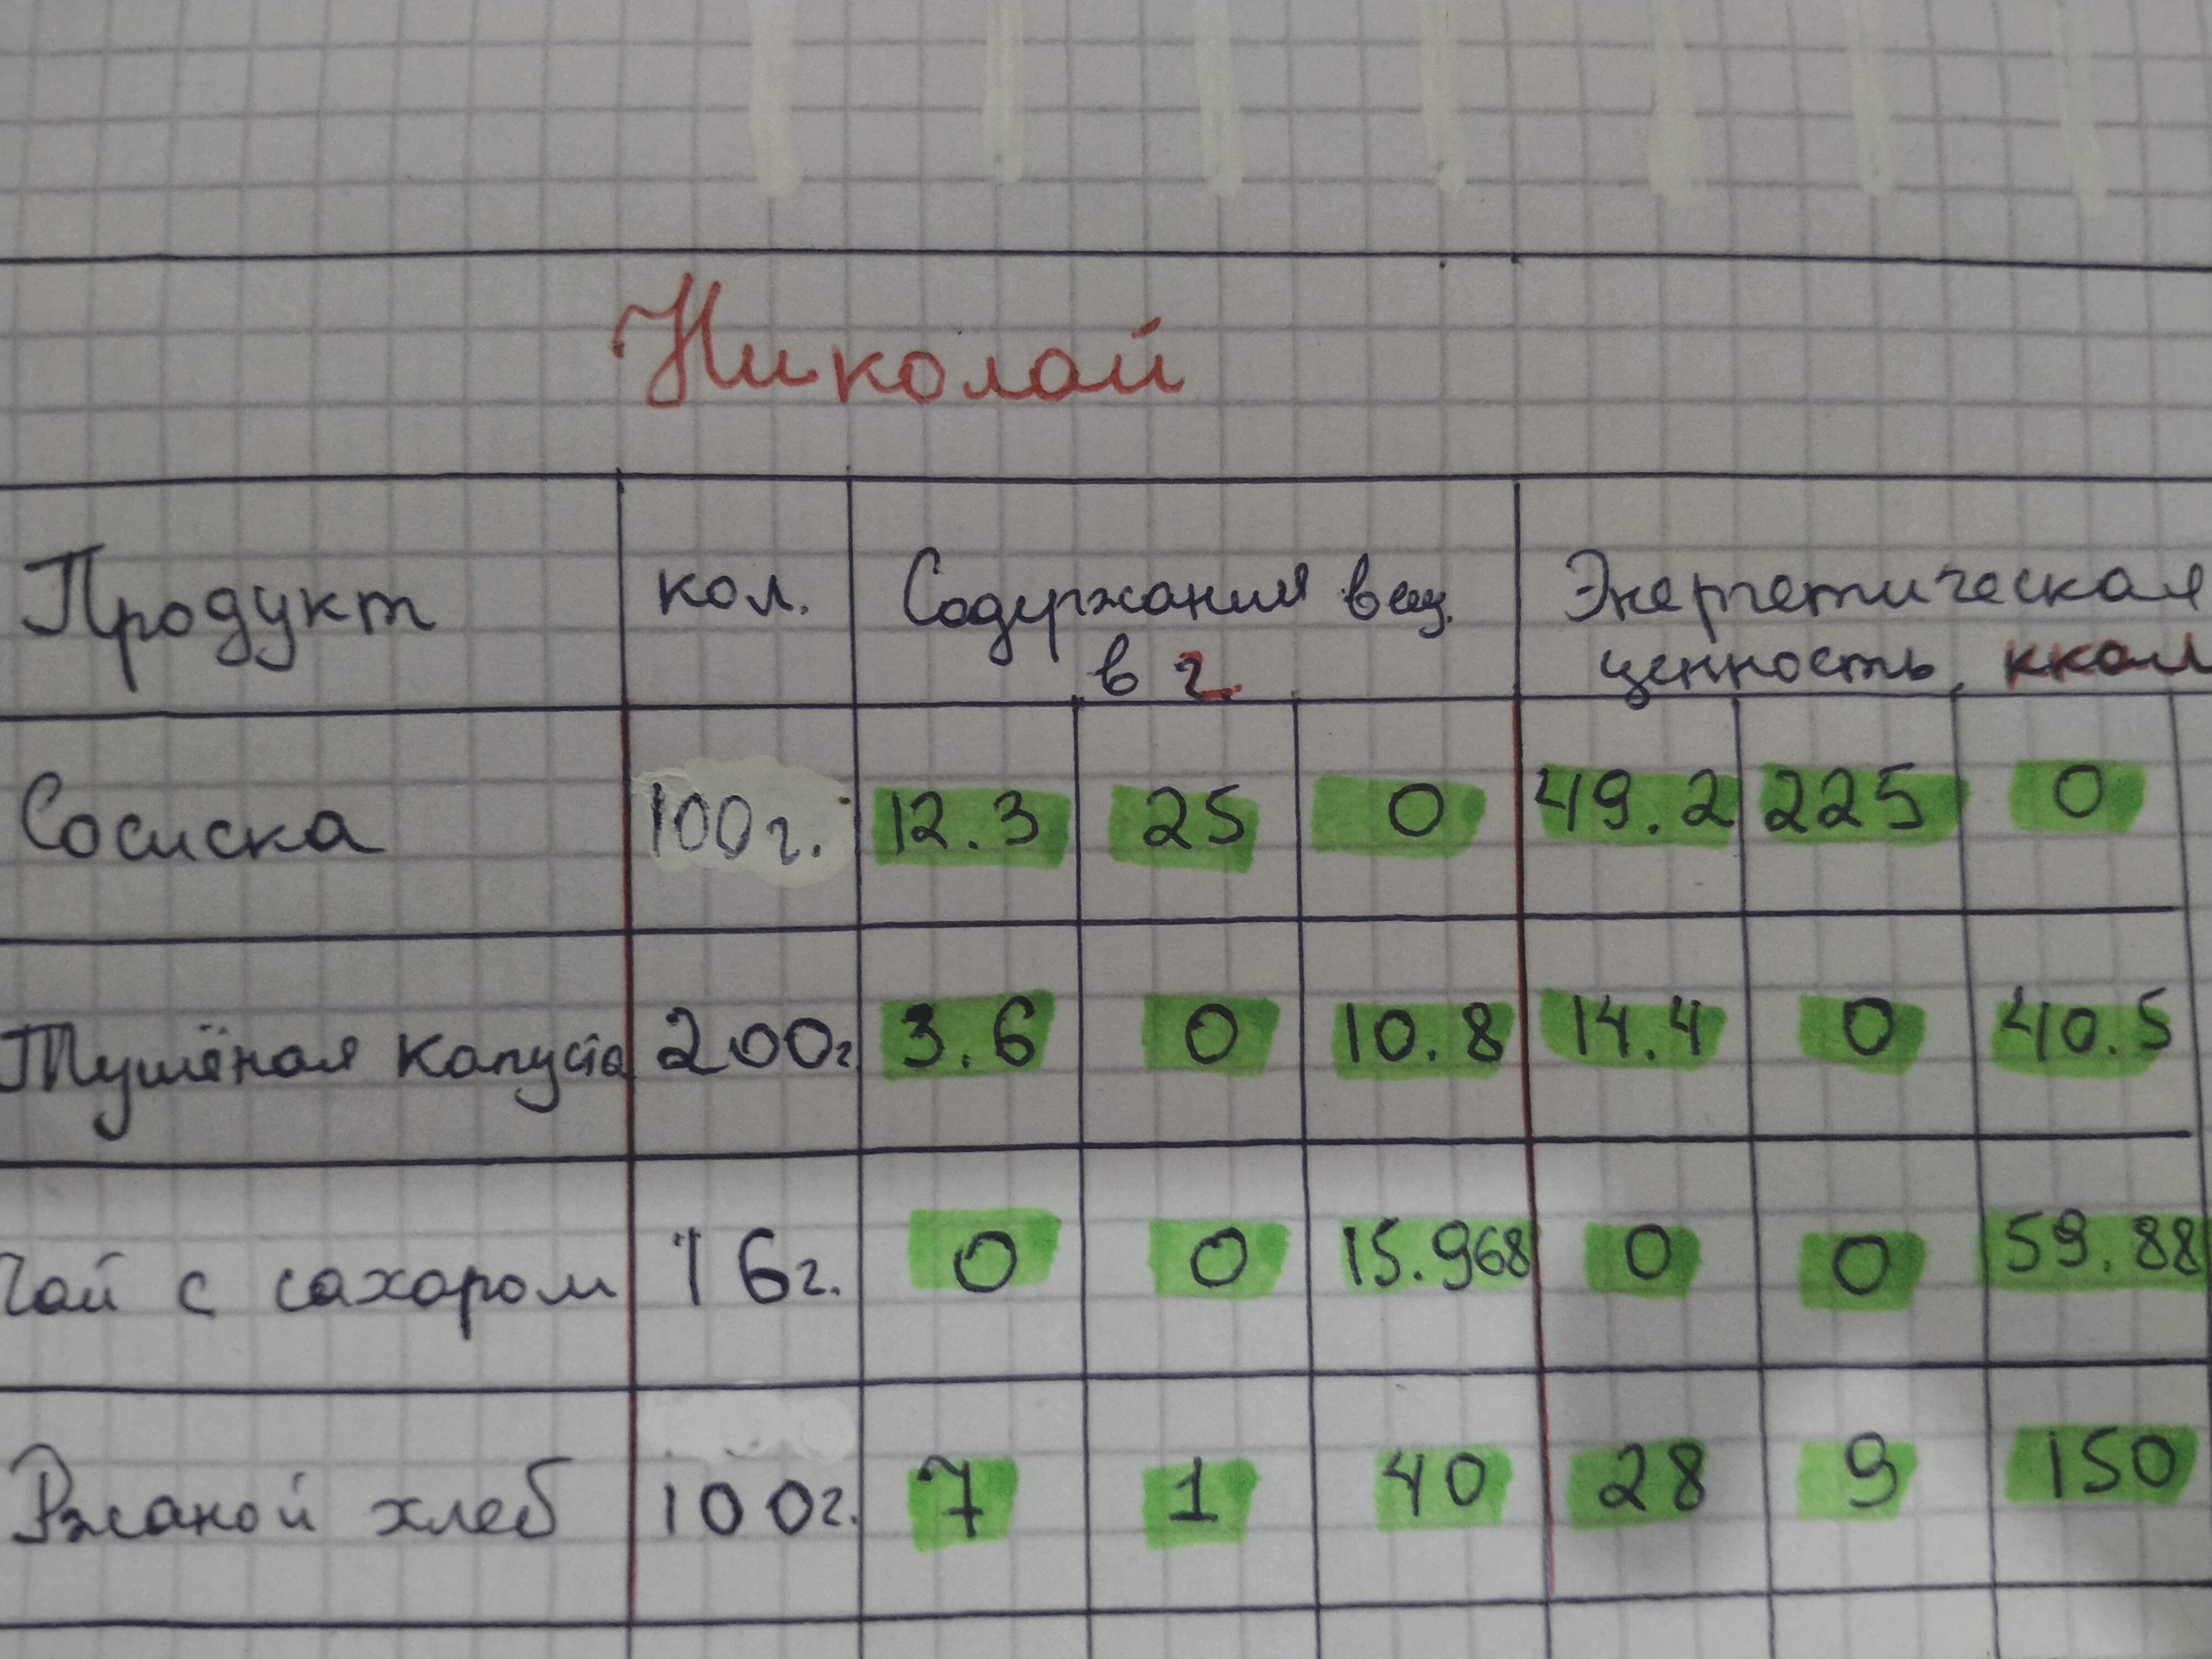 Николай
Продукт кол. Содержания вещ. Энергетическая
в г. ценность, ккал
Сосиска 100г. 12.3 25 0 49.2 225 0
Тушёная капуста 200г 3.6 0 10.8 14.4 0 40.5
Чай с сахаром 16г. 0 0 15.968 0 0 59.88
Ржаной хлеб 100г. 7 1 40 28 9 150